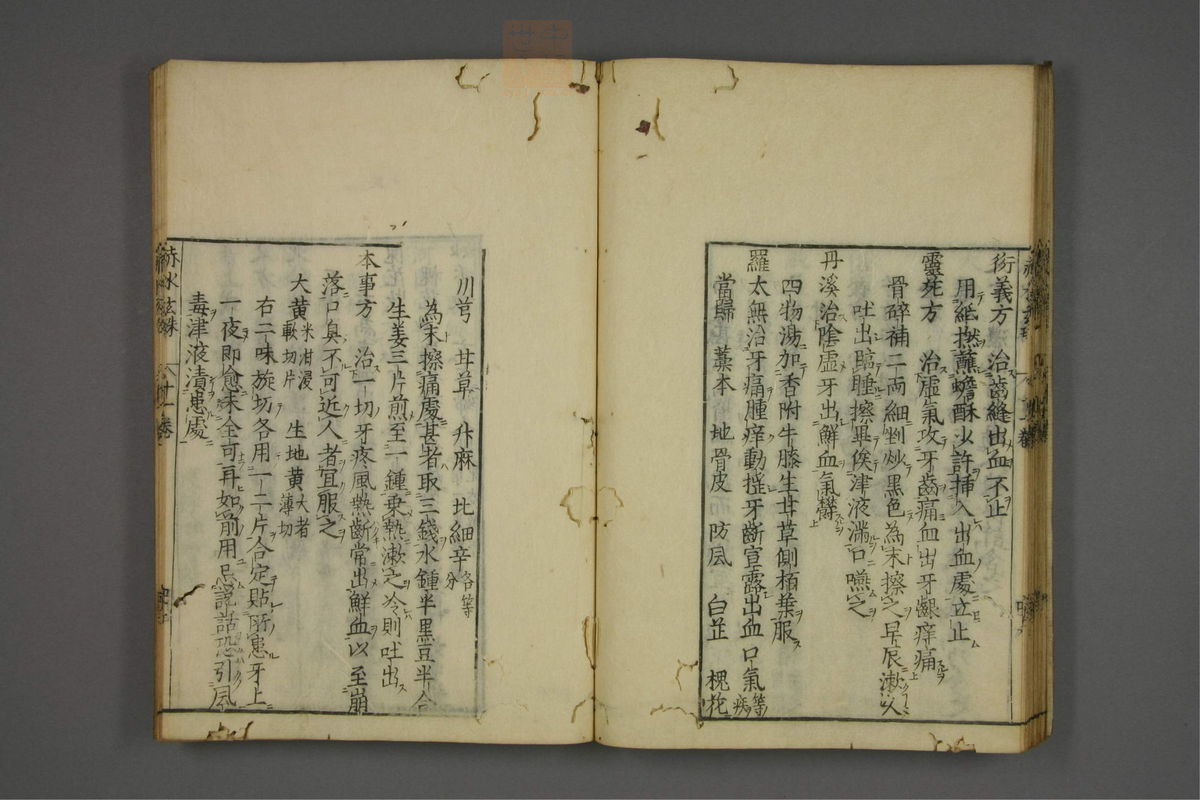 衍義方　治齒縫出血不止
用紙撚蘸蟾酥少許挿入出血處立止
靈苑方　治虛氣攻牙齒痛血出牙齦痒痛
骨碎補二両細剉炒黒色為末擦之早辰漱以
吐出臨睡擦畢俟津液滿口嚥之
丹溪治陰虛牙出鮮血氣欝
四物湯加香附牛膝生甘草側栢葉服
羅太無治牙痛腫痒動搖牙齗宣露出血口氣等疾
當歸　藁本　地骨皮　防風　白芷　槐花
川芎　甘草　升麻　比細辛各等分
為末擦痛處甚者取三錢水鍾半黒豆半合
生姜三片煎至一鍾乗熱漱之冷則吐出
本事方　治一切牙疼風熱齗常出鮮血以至崩
落口臭不可近人者宜服之
大黄米泔浸軟切片　生地黄大者薄切
右二味旋切各用一二片合定貼所患牙上
一夜即愈未全可再如前用忌説話恐引風
毒津液漬患處
赤水玄珠